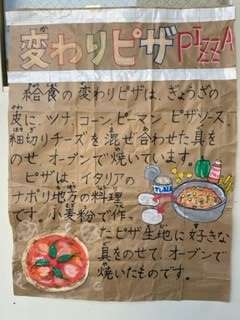 変わりピザ PIZZA
給食の変わりピザは、ぎょうざの
皮に、ツナ、コーン、ピーマン、ピザソース、
細切りチーズを混ぜ合わせた具を
のせ、オーブンで焼いています。
ピザは、イタリアの
ナポリ地方の料理
です。小麦粉で作っ
たピザ生地に好きな
具をのせて、オーブンで
焼いたものです。